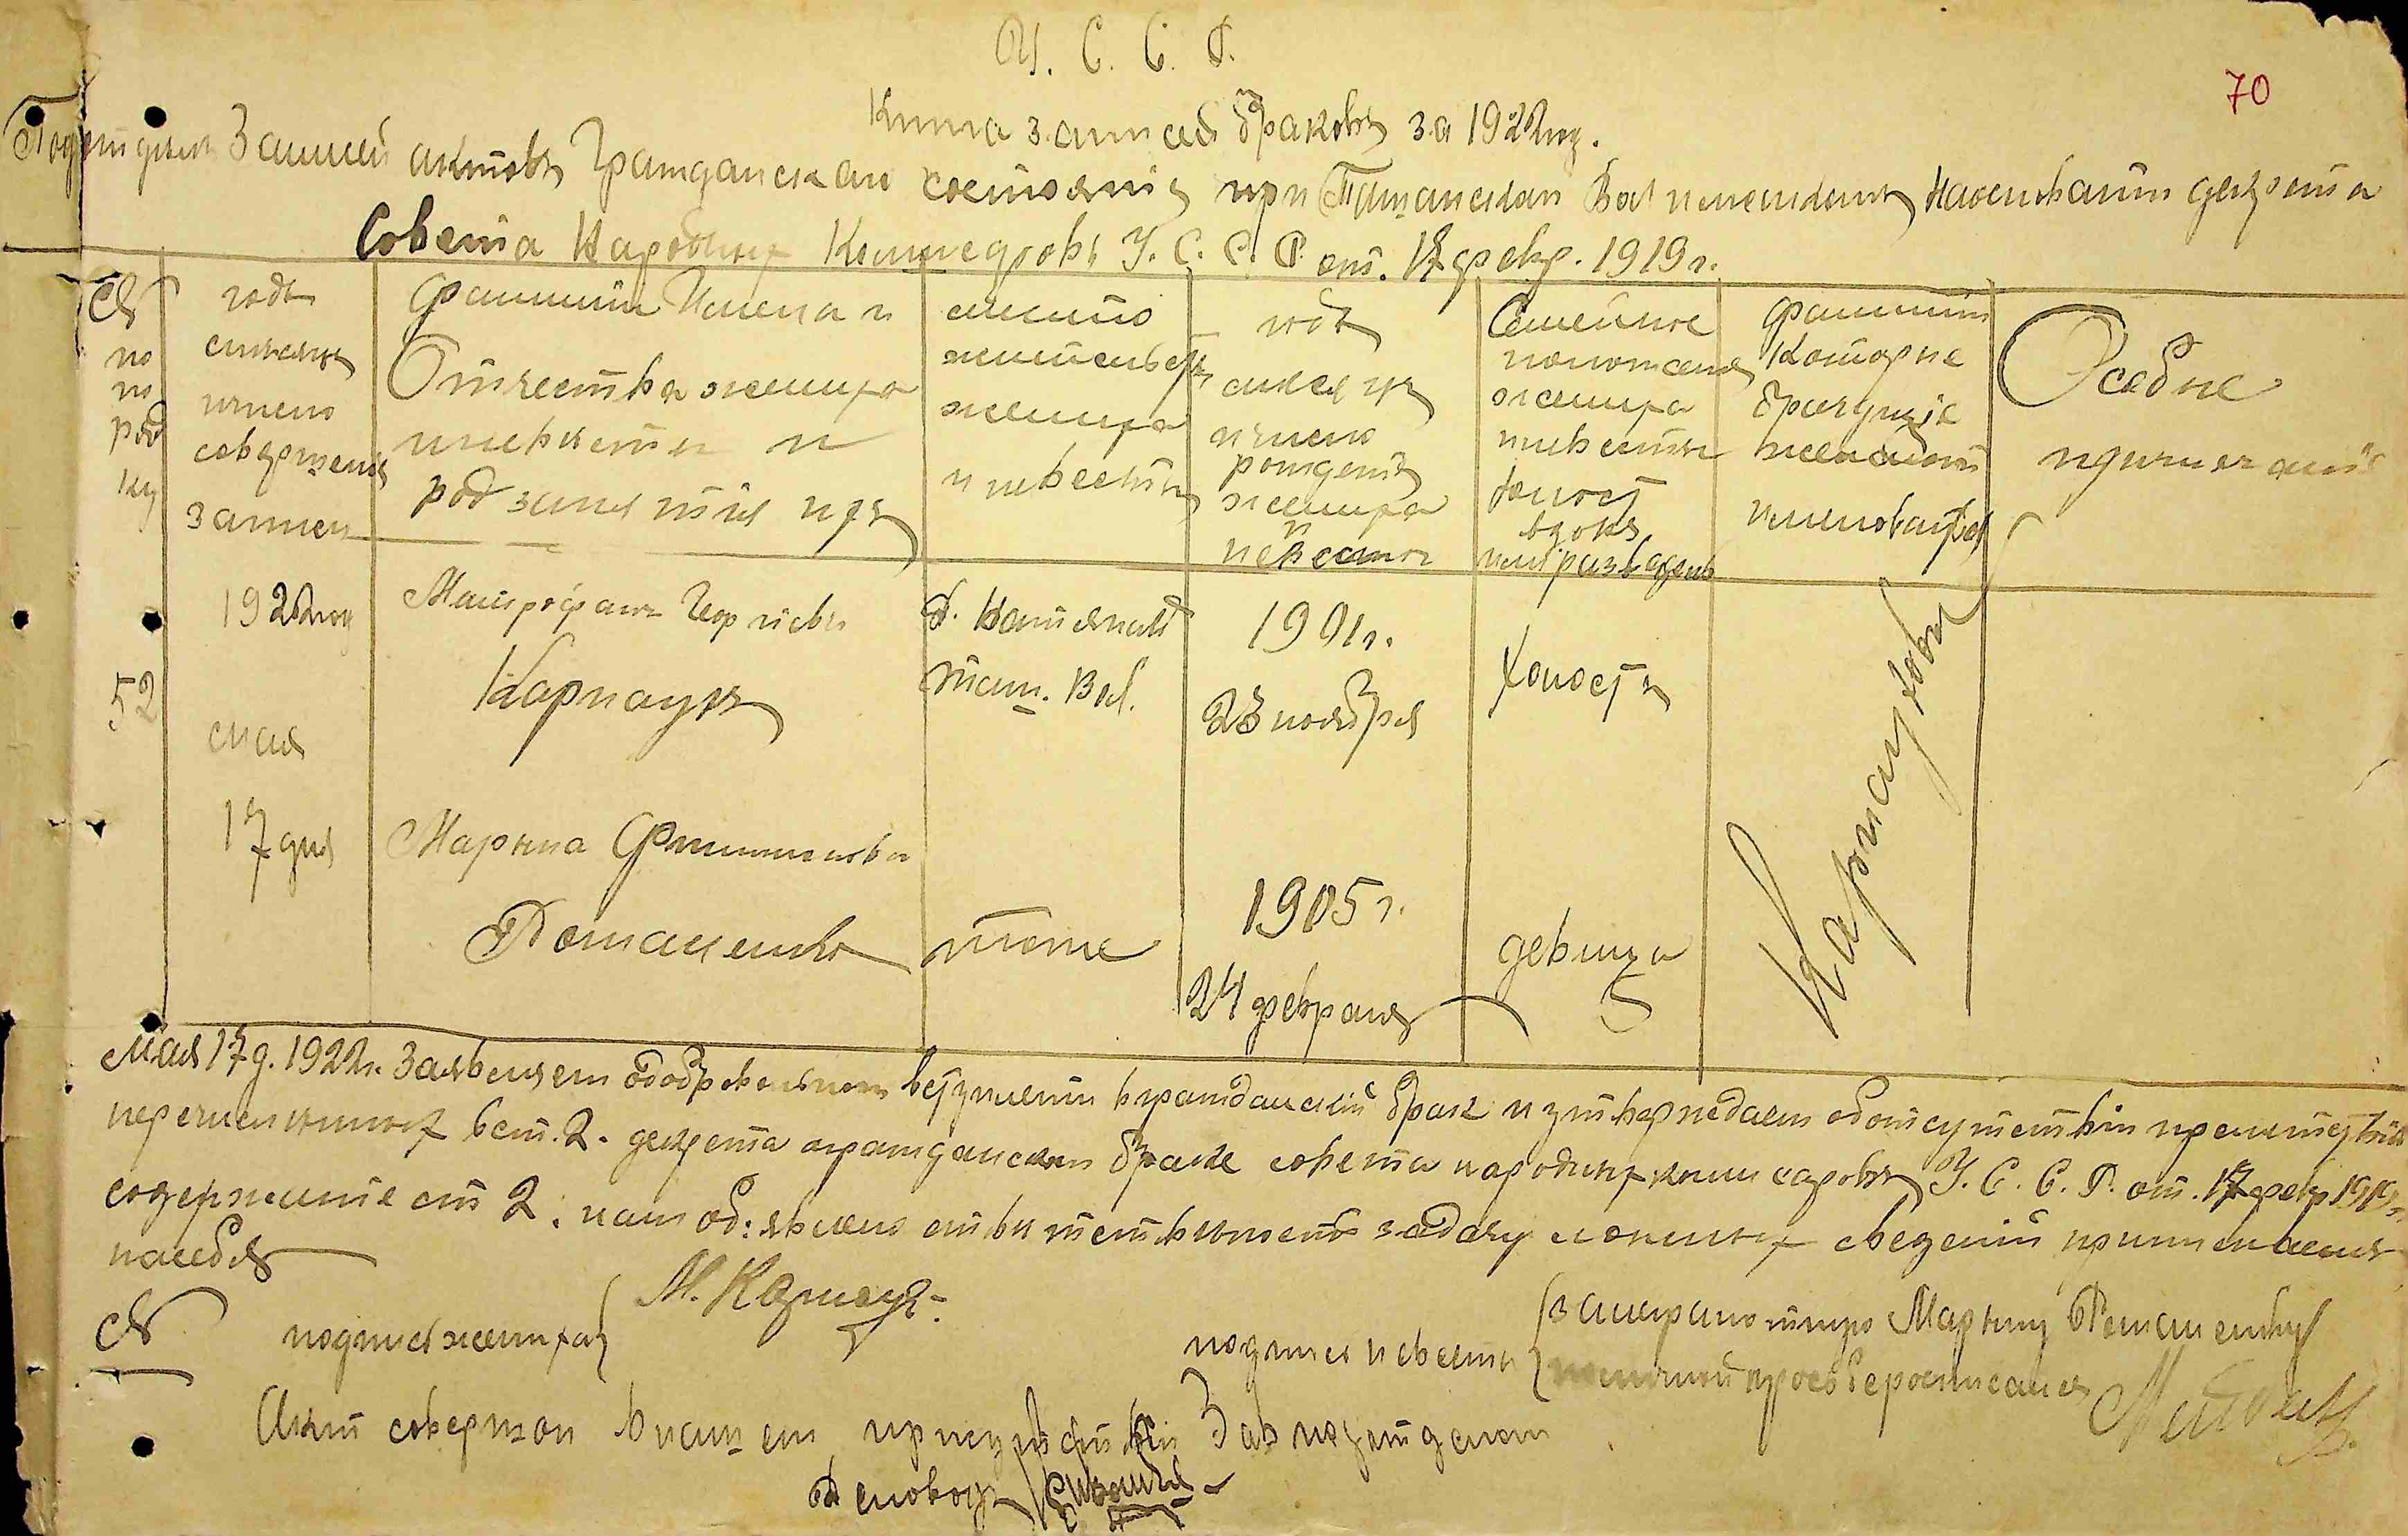 У. С. С. Р.
70
Книга записей браковъ за 1922 год.
Подотдѣлъ Записей актовъ Гражданскаго состоянія при Вол исполкомѣ На основаніи декрета
Совета Народных Комиссаровъ У. С. С. Р. от. 17 февр. 1919 г.
№ по по рядку
годъ мѣсяцъ и число совершения записи
Фамилии Имена и Отчества жениха и невѣсты и род занятия их
место жительства жениха и невесты
годъ месяцъ и число рождения жениха и невесты
Семейное положение жениха и невесты холост вдовъ или разведенъ
фамилии Которые брачущіе желают именоватся
Особые примечания
52
1922 год
мая
17 дня
Митрофанъ Георгиевъ
Карнаухъ
Вол.
1901 г.
23 ноября
Холостъ
Карнауховы
Марина Филипова
Поташенко
тоже
1905 г.
24 февраля
девица
Мая 17 д. 1922 г. Заявляем о добровольном вступлении в гражданский брак и утверждаем об отсутствии препятствий
перечисленных в ст. 2. декрета о гражданском браке совета народных комиссаровъ У. С. С. Р. от. 17 февр 1919 г
содержание ст 2. нам объявлено ответственность за дачу ложных сведений принимаем
на себя
подпись жениха М. Карнаух
подпись невесты за неграмотную Марину Поташенко
по личной просьбе росписался
Акт совершон в нашем присутствии Зав подотделом
Деловод